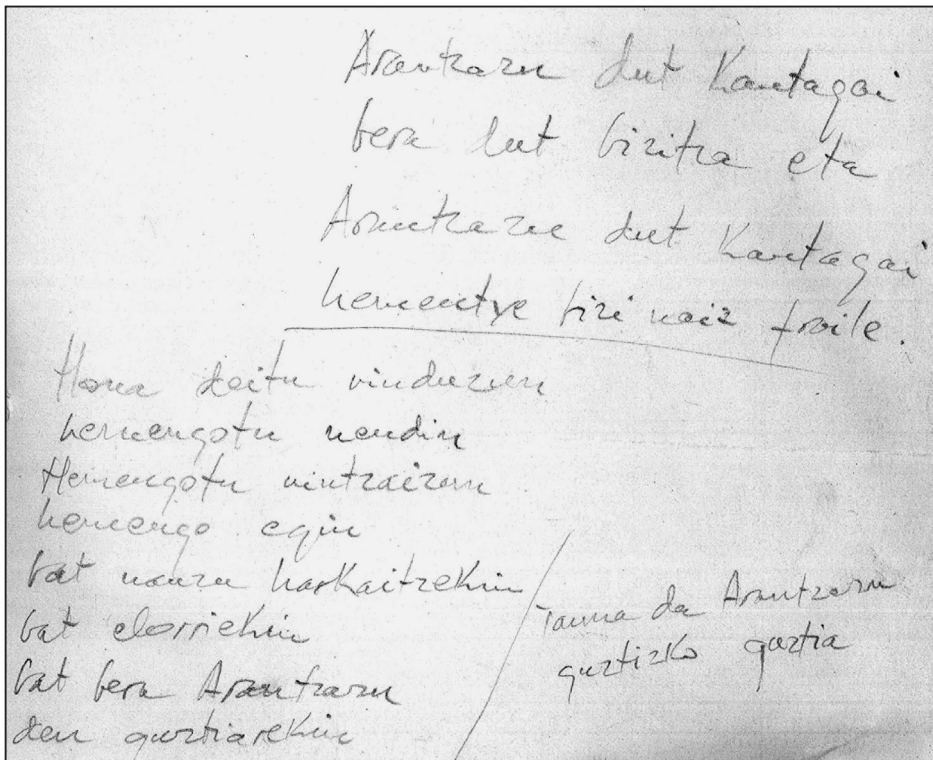 Arantzazu dut Kantagai
bera dut bizitza eta
Arantzazu dut Kantagai
hementxe bizi naiz fraile.
Hona deitu ninduzun
hemengotu nendin
Hemengotu nintzaizun
hemengo egin
bat nauzu harkaitzekin
bat elorriekin
bat bera Arantzazu
den guztiarekin
Tauna da Arantzazu
guztizko guztia